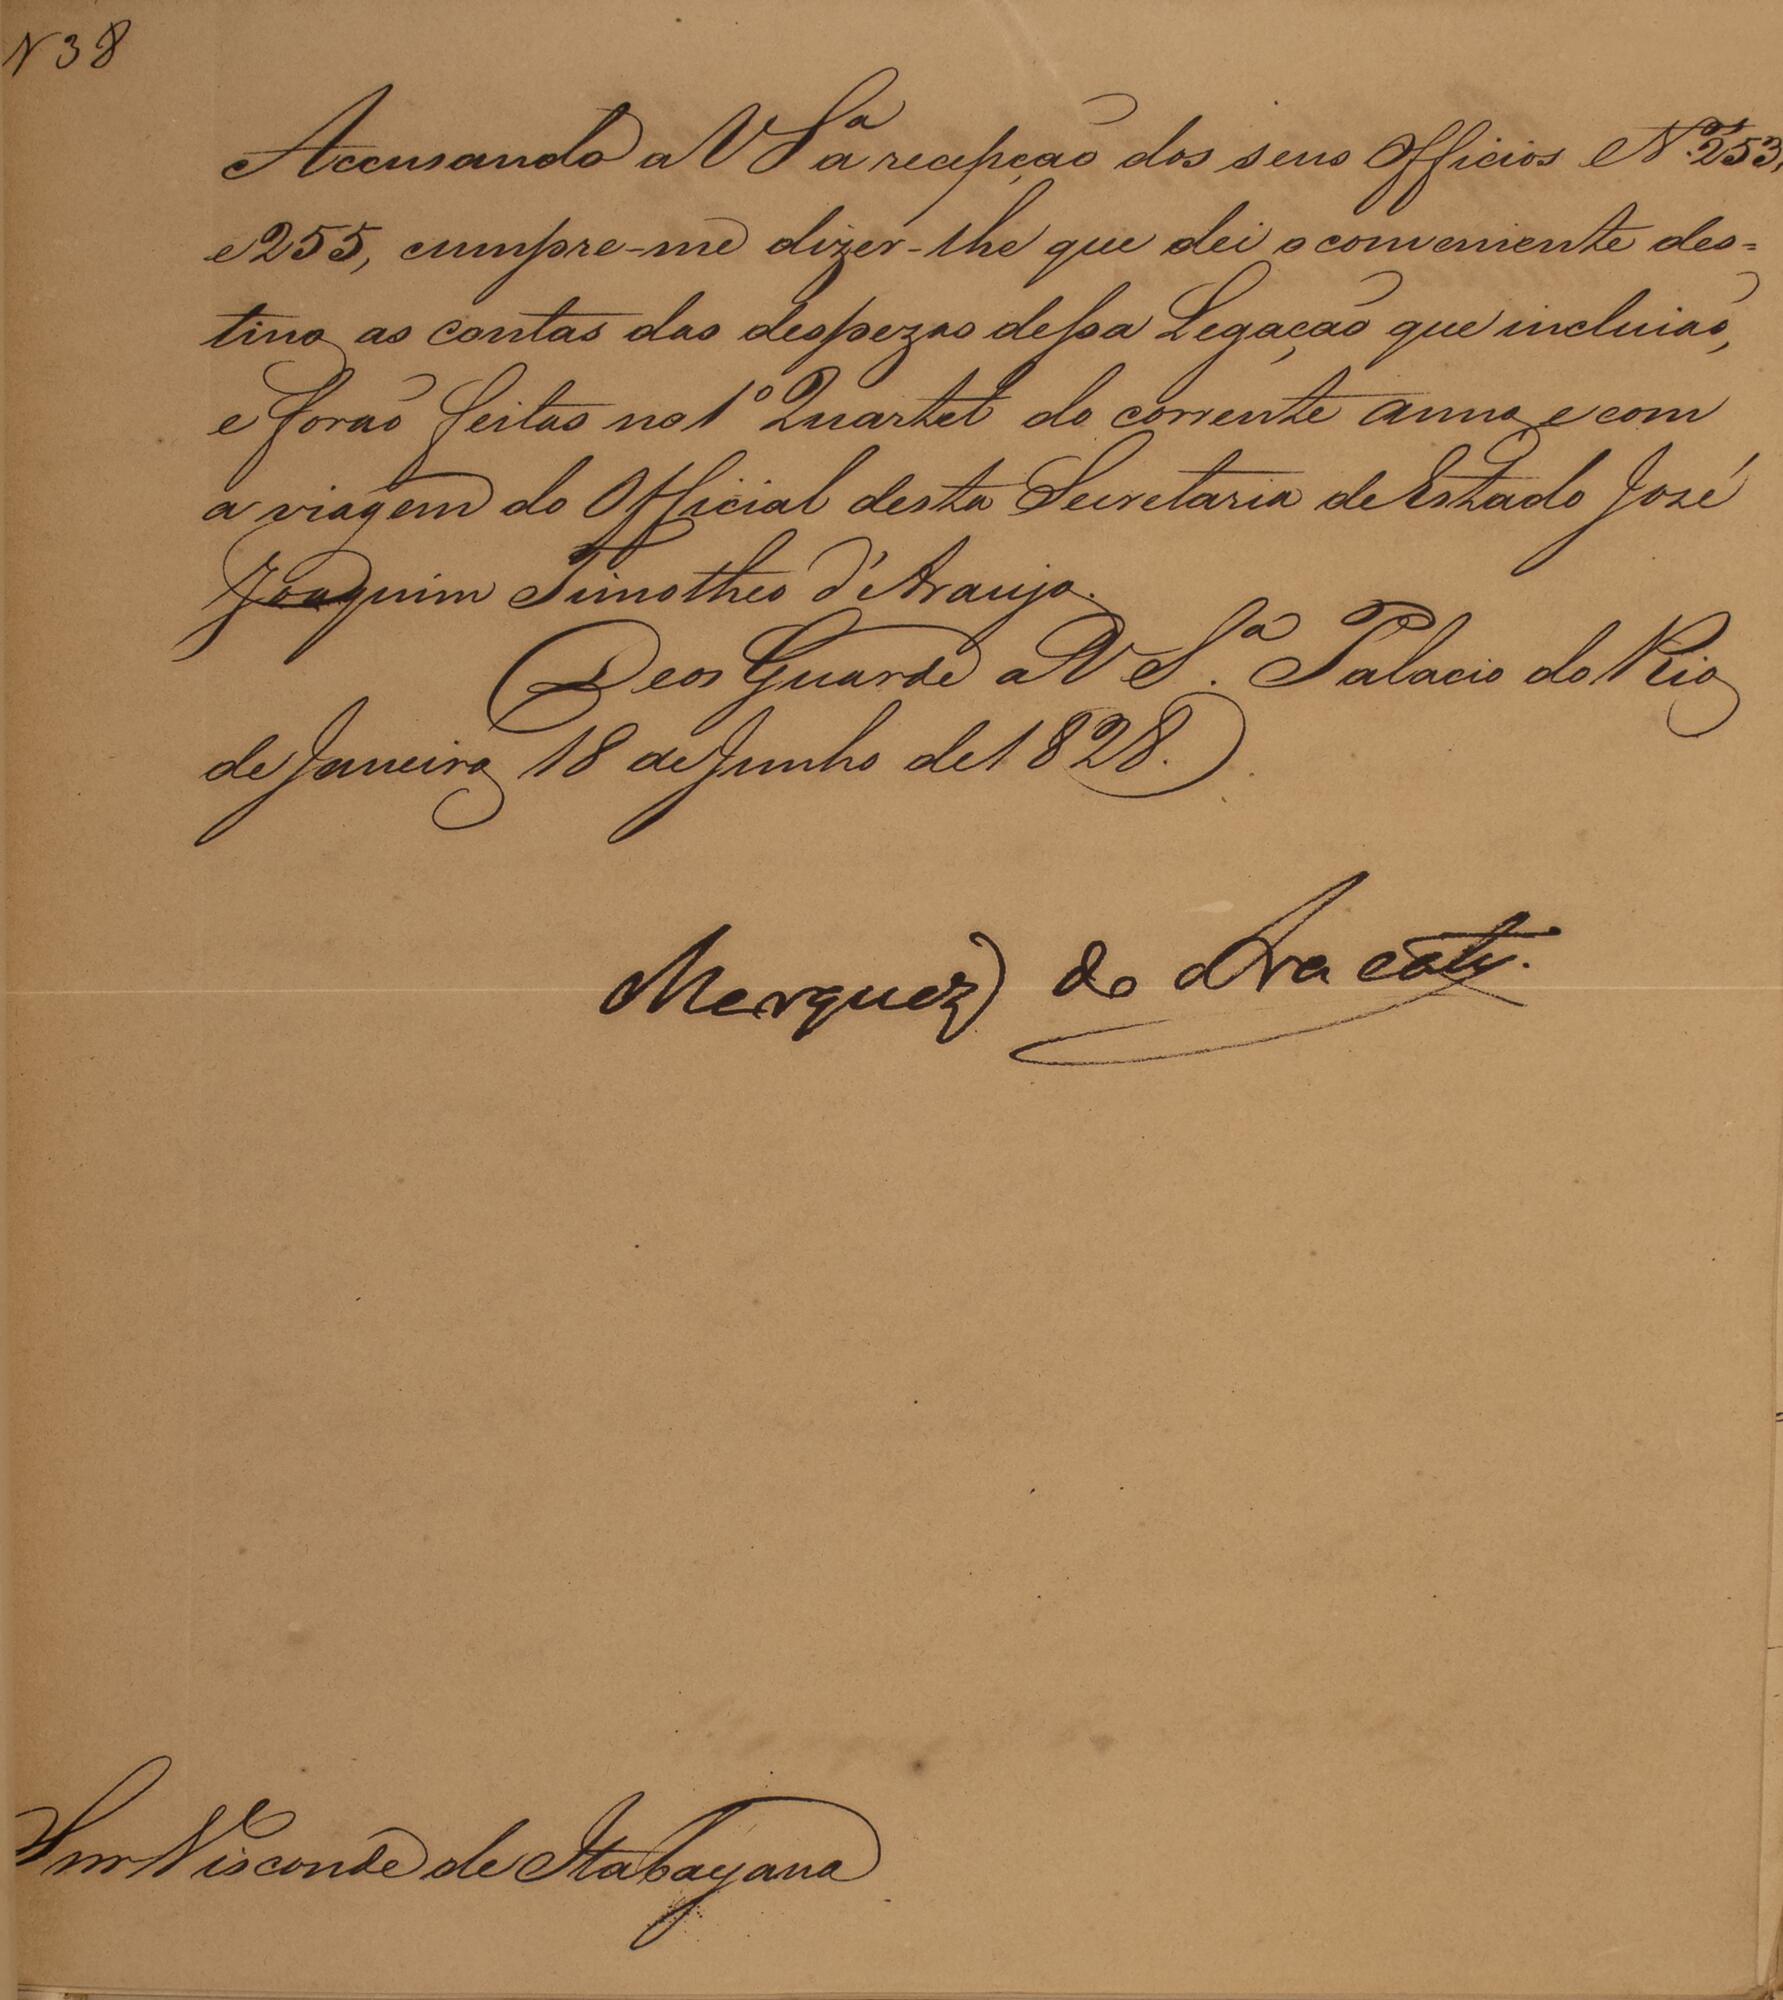 N 38
Accusando a V Sª a recepção dos seus Officios Nºs 253,
e 255, cumpre-me dizer-lhe que dei o conveniente des=
tino as contas das despezas dessa Legação que incluião,
e forão feitas no 1º Quartel do corrente anno, e com
a viagem do Official desta Secretaria de Estado José
Joaquim Timotheo d'Araujo.
Deos Guarde a V Sª. Palacio do Rio
de Janeiro 18 de Junho de 1828.
Marquez do Aracaty.
Snr Visconde de Itabayana